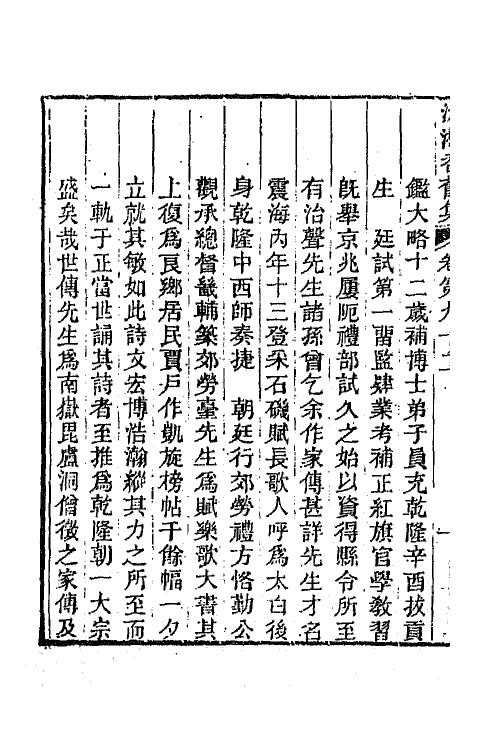 鑑大略十二歳補博士弟子員充乾隆辛酉拔貢
生 廷試第一畱監肄業考補正紅旗官學教習
旣舉京兆屢阨禮部試久之始以資得縣令所至
有治聲先生諸孫曾乞余作家傳甚詳先生才名
震海內年十三登采石磯賦長歌人呼爲太白後
身乾隆中西師奏捷 朝廷行郊勞禮方恪勤公
觀承總督畿輔築郊勞臺先生爲賦樂歌大書其
上復爲良鄉居民賈戶作凱旋榜帖千餘幅一夕
立就其敏如此詩文宏博浩瀚縱其力之所至而
一軌于正當世誦其詩者至推爲乾隆朝一大宗
盛矣哉世傳先生爲南嶽毘盧洞僧徵之家傳及